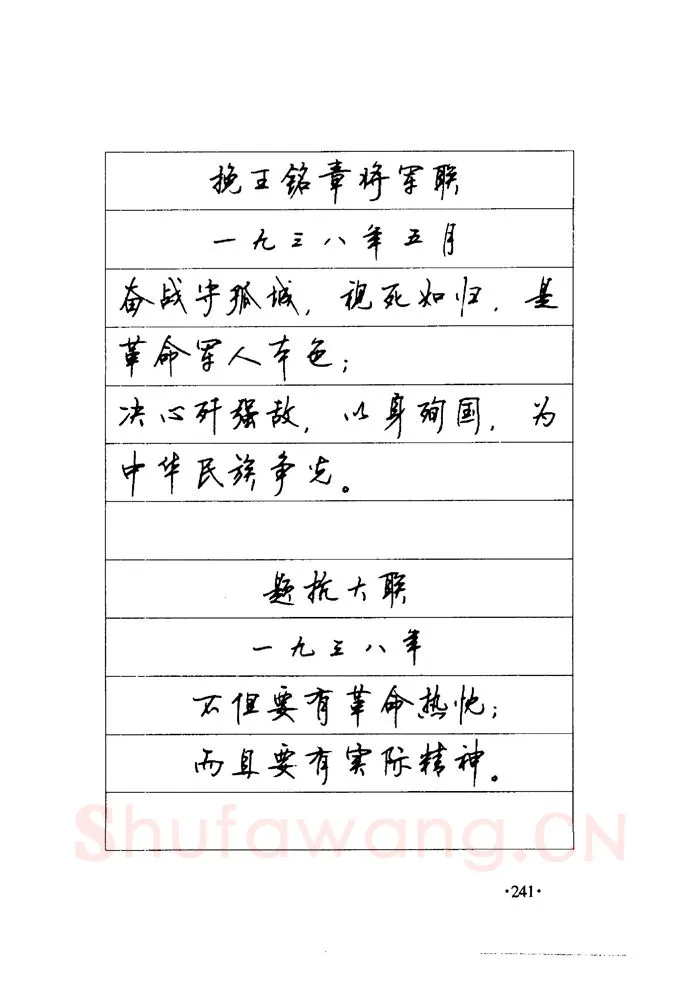 挽王铭章将军联
一九三八年五月
奋战守孤城，视死如归，是
革命军人本色；
决心歼强敌，以身殉国，为
中华民族争光。
题抗大联
一九三八年
不但要有革命热忱；
而且要有实际精神。
Shufawang.CN
·241·